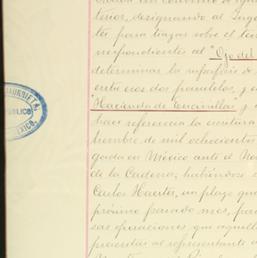 terior, designando al Inge
tes para trazar sobre el te
rrespondientes al "Ojo del
determinar la superficie de
entre esos dos paralelos, y
"Hacienda de Encinillas" y
hace referencia la escritura
hombre de mil ochocientos
gada en México ante el No
de la Cadena; habiéndose
Carlos Huerter, un plazo que
próximo pasado mes, para
sas operaciones que aquella
presentar al representante d
PÚBLICO
MÉXICO.